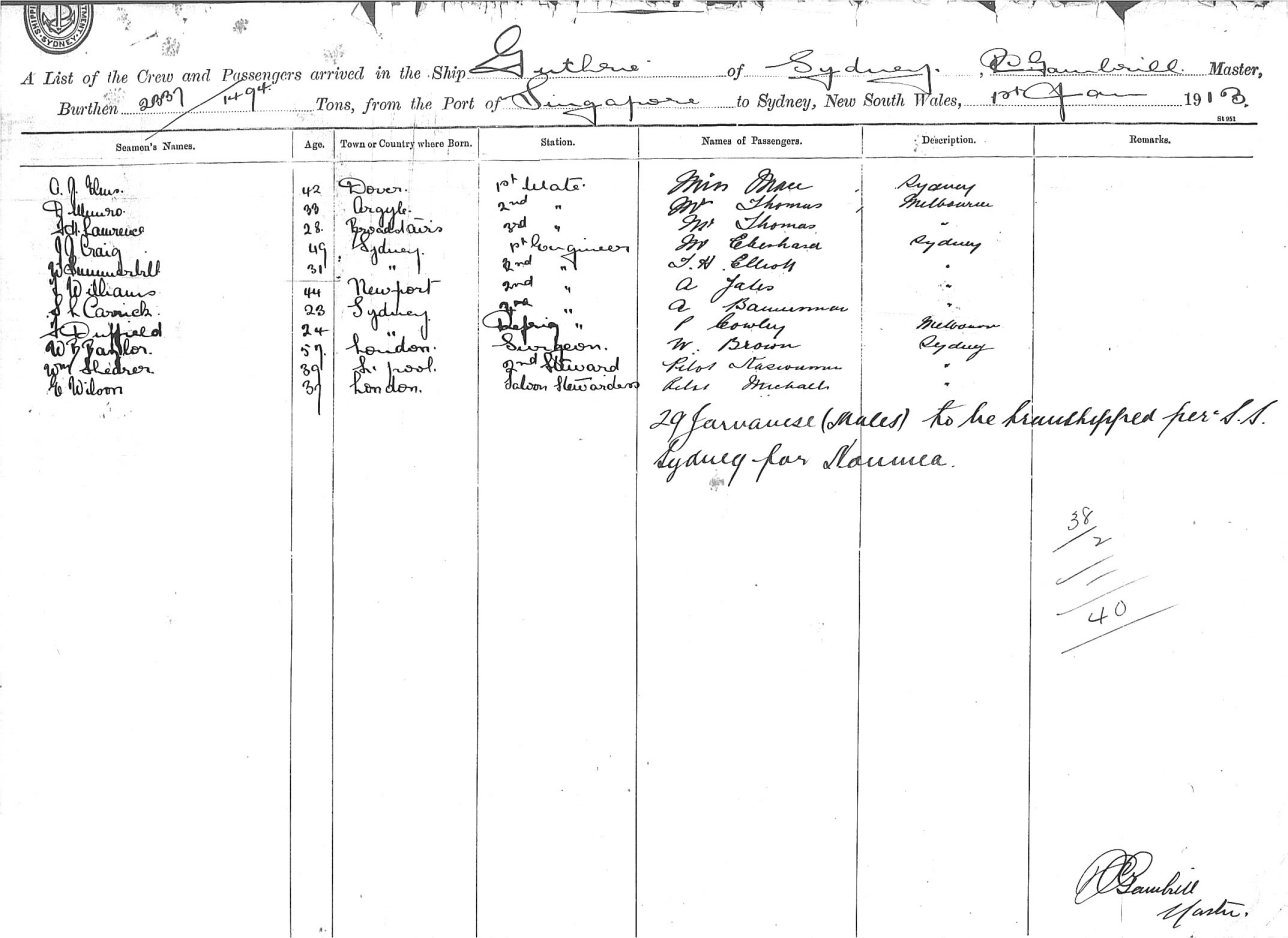 SYDNEY
A List of the Crew and Passengers arrived in the Ship Guthrie of Sydney, Gambrill Master,
Burthen 2337/1494 Tons, from the Port of Singapore to Sydney, New South Wales, 1st Jan 1913
Seamen's Names. Age. Town or Country where Born. Station. Names of Passengers. Description. Remarks.
42 Dover. 1st Mate. Miss Sydney
D Munro. 33 Argyle. 2nd " Mr Thomas Melbourne
Lawrence 28. Broadstairs 3rd " Mr Thomas "
J J Craig 49 Sydney. 1st Engineer Mr Eberhard Sydney
W Summerbell 31 " 2nd " T. H. Elliott "
J Williams 44 Newport 2nd " A "
S L Carrick. 23 Sydney. 3rd " A Bannerman "
Duffield 24 " Refrig " P Cowley Melbourn
W B 57 London. Surgeon. W. Brown Sydney
Wm Shearer 39 L'pool. 2nd Steward Pilot "
E Wilson 37 London. Saloon Stewardess Pilot Michaels "
29 Jarvanese (Males) to be transhipped per S.S.
Sydney for Noumea.
38
2
40
Gambrill
Master.